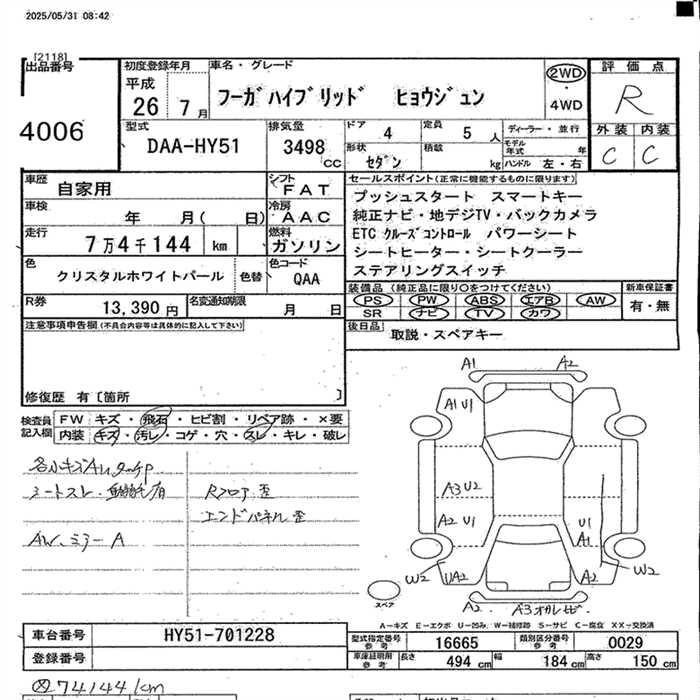 2025/05/31 08:42
[2118]
出品番号
4006
初度登録年月
平成
26 7月
車名・グレード
フーガハイブリッド ヒョウジュン
2WD
・
4WD
評価点
R
外装 内装
C C
型式
DAA-HY51
排気量
3498
cc
ドア 4
定員 5 人
形状 セダン
積載 kg
ディーラー・並行
モデル年式 年
ハンドル 左・右
車歴
自家用
シフト
FAT
車検
年 月( 日)
冷房
AAC
走行
7万4千144 km
燃料
ガソリン
色
クリスタルホワイトパール
色替
色コード
QAA
R券
13,390円
名変通知期限
月 日
セールスポイント(正常に機能するものに限ります)
プッシュスタート スマートキー
純正ナビ・地デジTV・バックカメラ
ETC クルーズコントロール パワーシート
シートヒーター・シートクーラー
ステアリングスイッチ
装備品 (純正品に限り○をつけてください)
PS PW ABS エアB AW
SR ナビ TV カワ
新車保証書
有・無
後日品
取説・スペアキー
注意事項申告欄(不具合内容等は具体的に記入して下さい)
修復歴 有〔箇所 〕
検査員
記入欄
FW キズ・飛石・ヒビ割・リペア跡・×要
内装 キズ・汚レ・コゲ・穴・スレ・キレ・破レ
各小キズAU
シートスレ
AW、ミラーA
Rフロア歪
エンドパネル歪
A1 A2
A1 U1
A3 U2
A2 U1
U1
A1
W2 UA2
A2 W2
A2 A3
スペア
A-キズ E-エクボ U-凹み W-補修跡 S-サビ C-腐食 XX-交換済
車台番号
HY51-701228
登録番号
型式指定番号
参考
16665
類別区分番号
参考
0029
車庫証明用
参考
長さ 494 cm
幅 184 cm
高さ 150 cm
メ74144km